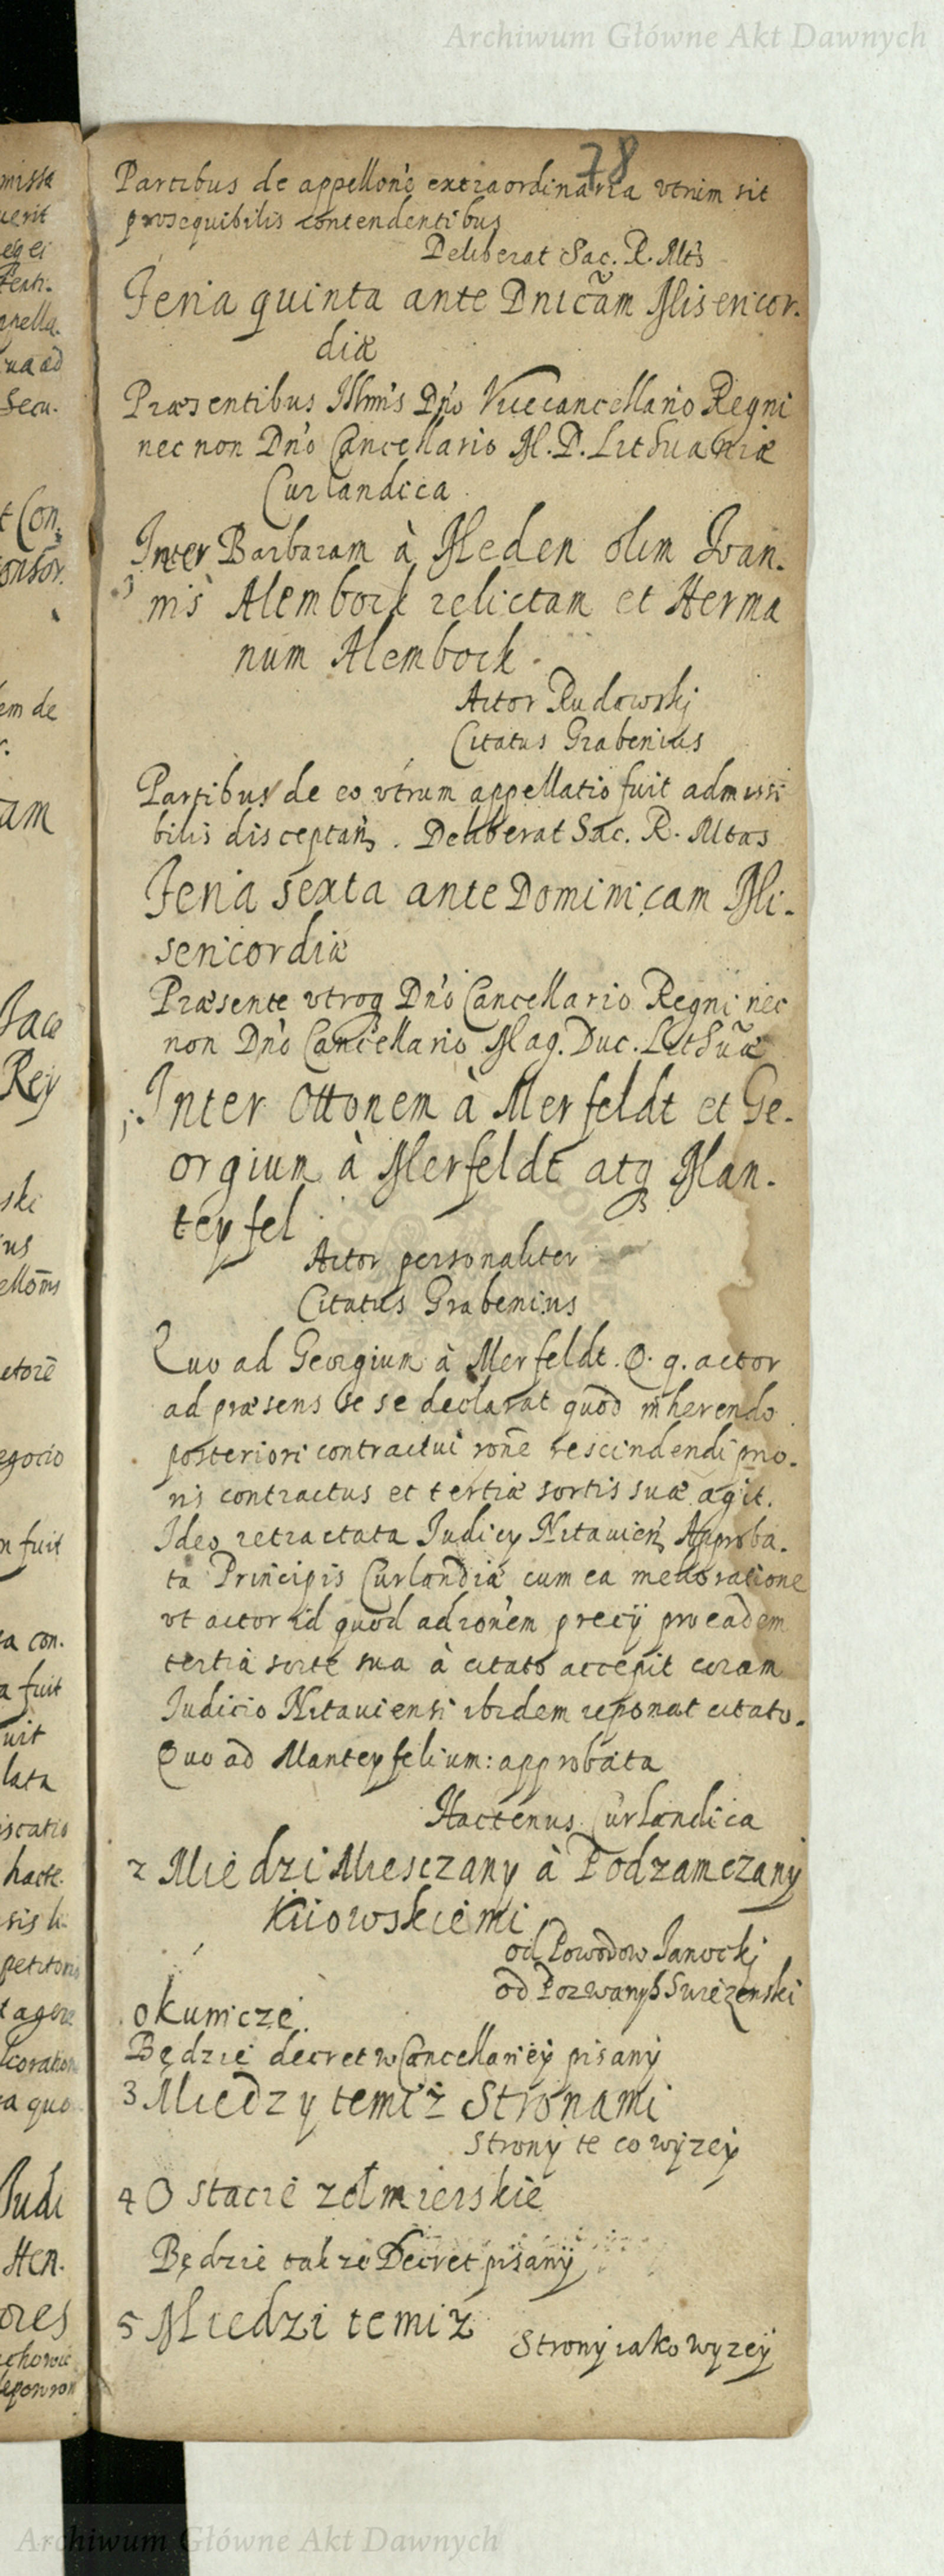 Archiwum Główne Akt Dawnych
78
Partibus de appellone extraordinaria vtrum sit
prosequibilis contendentibus
Deliberat Sac. R. Mts
Feria quinta ante Dnicãm Misericor-
diæ
Præsentibus Illmis Dno Vicecancellario Regni
nec non Dno Cancellario M. D. Lithuaniæ
Curlandica
Inter Barbaram à Meden olim Ioan-
nis Alembock relictam et Herma
num Alembock.
Actor Rudowskj
Citatus Grabenius
Partibus de eo vtrum appellatio fuit admissi
bilis disceptan. Deliberat Sac. R. Mtas
Feria sexta ante Dominicam Mi-
sericordiæ
Præsente vtroq Dno Cancellario Regni nec
non Dno Cancellario Mag. Duc. Lithuæ
1. Inter Ottonem à Merfeldt et Ge-
orgium à Merfeldt atq Man-
teyfel
Actor personaliter
Citatus Grabenius
Quo ad Georgium à Merfeldt. Q. q. actor
ad præsens se se declarat quod inherendo
posteriori contractui rone rescindendi prio-
ris contractus et tertiæ sortis suæ agit.
Ideo retractata Iudicy Mitauien Approba-
ta Principis Curlandiæ cum ea melioratione
vt actor id quod ad ronem precÿ pro eadem
tertia sorte sua à citato accepit coram
Iudicio Mitauiensi ibidem reponat citato.
Quo ad Manteyfelium: approbata
Hactenus Curlandica
2 Miedzi Miesczany à Podzamczany
Kiiowskiemi
od Powodow Janockj
od Pozwanych Swiezenski
o Kunicze.
Będzie decret w Cancellariey pisany
3 Miedzy temiż Stronami
Strony te co wyzey
4 O stacie zołmierskie
Będzie takze Decret pisany
5 Miedzi temiż
Strony iako wyzey
Archiwum Główne Akt Dawnych